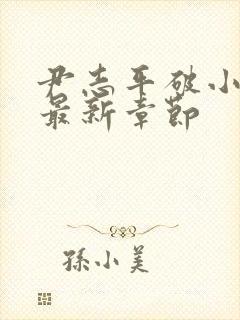 尹志平破小
最新章節
孫小美